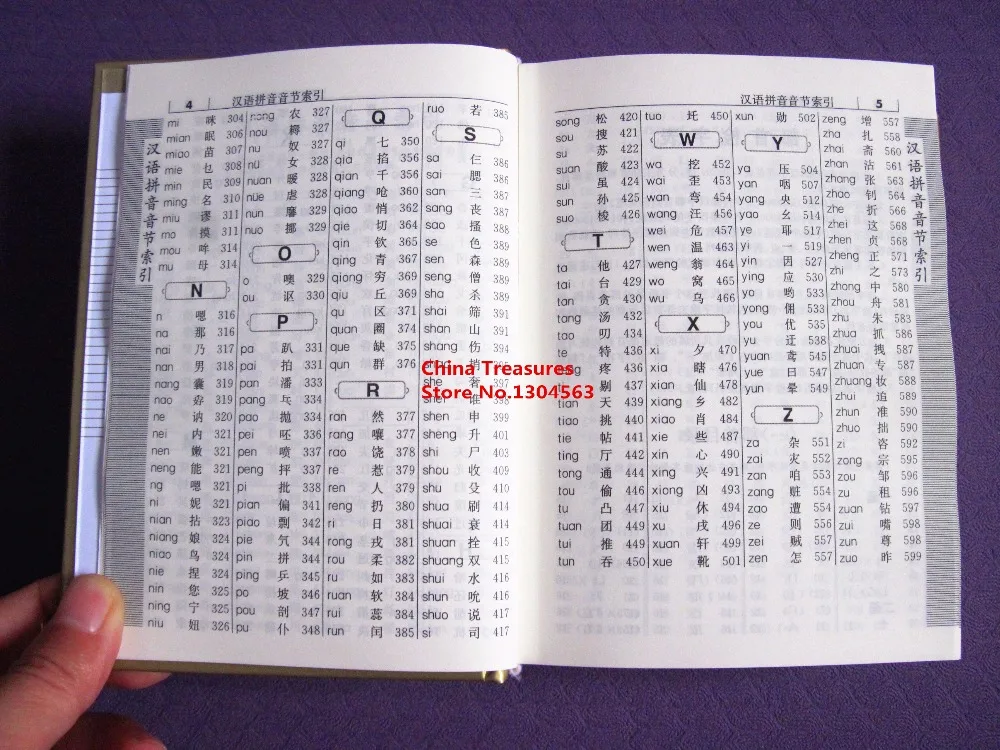 4 汉语拼音音节索引
汉语拼音音节索引
mi 咪 304
mian 眠 306
miao 苗 307
mie 乜 309
min 民 309
ming 名 310
miu 谬 311
mo 摸 311
mou 哞 314
mu 母 314
N
n 嗯 316
na 那 316
nai 乃 317
nan 男 318
nang 囊 319
nao 孬 319
ne 讷 320
nei 内 321
nen 嫩 321
neng 能 321
ng 嗯 321
ni 妮 321
nian 拈 323
niang 娘 324
niao 鸟 324
nie 捏 324
nin 您 325
ning 宁 325
niu 妞 326
nong 农 327
nou 耨 327
nu 奴 327
nü 女 328
nuan 暖 328
nüe 虐 328
nun 黁 329
nuo 挪 329
O
o 噢 329
ou 讴 330
P
pa 趴 331
pai 拍 331
pan 潘 333
pang 乓 334
pao 抛 334
pei 呸 336
pen 喷 337
peng 抨 337
pi 批 338
pian 偏 341
piao 飘 342
pie 气 344
pin 拼 344
ping 乒 345
po 坡 346
pou 剖 347
pu 仆 348
Q
qi 七 350
qia 掐 356
qian 千 356
qiang 呛 360
qiao 悄 362
qie 切 364
qin 钦 365
qing 青 367
qiong 穷 369
qiu 丘 369
qu 区 371
quan 圈 374
que 缺 375
qun 群 376
R
ran 然 377
rang 嚷 377
rao 饶 378
re 惹 379
ren 人 379
reng 扔 380
ri 日 381
rong 戎 381
rou 柔 382
ru 如 383
ruan 软 384
rui 蕊 384
run 闰 385
ruo 若 385
S
sa 仨 386
sai 腮 386
san 三 387
sang 丧 387
sao 搔 388
se 色 389
sen 森 389
seng 僧 389
sha 杀 389
shai 筛 391
shan 山 391
shang 伤 394
she 奢 397
shei 谁 398
shen 申 399
sheng 升 401
shi 尸 403
shou 收 409
shu 殳 410
shua 刷 414
shuai 衰 414
shuan 拴 415
shuang 双 415
shui 水 416
shun 吮 416
shuo 说 417
si 司 417
汉语拼音音节索引 5
汉语拼音音节索引
song 松 420
sou 搜 421
su 苏 422
suan 酸 423
sui 虽 424
sun 孙 425
suo 梭 426
T
ta 他 427
tai 台 429
tan 贪 430
tang 汤 432
tao 叨 434
te 特 436
teng 疼 436
ti 剔 437
tian 天 439
tiao 挑 440
tie 帖 441
ting 厅 442
tong 通 444
tou 偷 446
tu 凸 447
tuan 团 449
tui 推 449
tun 吞 450
tuo 托 450
W
wa 挖 452
wai 歪 453
wan 弯 454
wang 汪 456
wei 危 457
wen 温 463
weng 翁 464
wo 窝 465
wu 乌 466
X
xi 夕 470
xia 瞎 476
xian 仙 478
xiang 乡 482
xiao 肖 484
xie 些 487
xin 心 490
xing 兴 491
xiong 凶 493
xiu 休 494
xu 戌 496
xuan 轩 499
xue 靴 501
xun 勋 502
Y
ya 压 504
yan 咽 507
yang 央 512
yao 幺 514
ye 耶 517
yi 一 519
yin 因 527
ying 应 530
yo 哟 533
yong 佣 533
you 优 535
yu 迂 538
yuan 鸢 545
yue 曰 547
yun 晕 549
Z
za 杂 551
zai 灾 552
zan 咱 553
zang 赃 554
zao 遭 554
ze 则 556
zei 贼 557
zen 怎 557
zeng 增 557
zha 扎 558
zhai 斋 560
zhan 沾 561
zhang 张 563
zhao 钊 564
zhe 折 566
zhei 这 568
zhen 贞 568
zheng 正 571
zhi 之 573
zhong 中 580
zhou 舟 581
zhu 朱 583
zhua 抓 586
zhuai 拽 587
zhuan 专 587
zhuang 妆 588
zhui 追 589
zhun 准 590
zhuo 拙 590
zi 咨 592
zong 宗 595
zou 邹 596
zu 租 596
zuan 钻 597
zui 嘴 598
zun 尊 598
zuo 昨 599
China Treasures
Store No.1304563